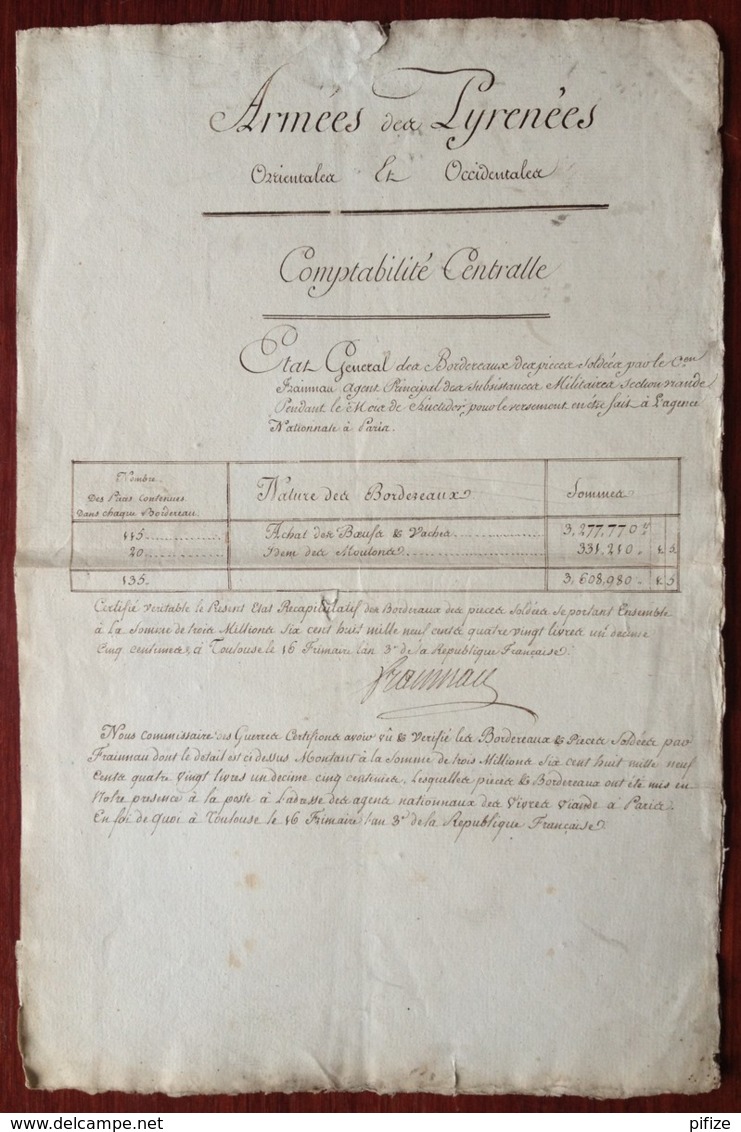 Armées des Pyrenées
Orientales Et Occidentales
Comptabilité Centralle
Etat General des Bordereaux des pieces soldées par le C.en
Frainnau Agent Principal des subsistances Militaires Section viande
Pendant le Mois de fructidor, pour le versement en étre fait à L'agence
Nationnale à Paris.
Nombre Des Pieces contenues Dans chaque Bordereau. Nature des Bordereaux Sommes
115 Achat des Bœufs & Vaches 3,277,770 ''
20 Idem des Moutons 331,210 '' 1. 5
135. 3,608,980 '' 1. 5
Certifié veritable le Present Etat Recapitulatif des Bordereaux des pieces soldées se portant Ensemble
à La Somme de trois Millions six cent huit mille neuf cents quatre vingt livres un decime
cinq centimes, à Toulouse le 16 Frimaire l'an 3e de la Republique Française.
Frainnau
Nous commissaire des Guerres Certifions avoir vû & Verifié les Bordereaux & Pieces Soldées par
Frainnau dont le detail est ci dessus Montant à la Somme de trois Millions six cent huit mille neuf
Cents quatre vingt livres un decime cinq centimes, Lesquelles pieces & Bordereaux ont été mis en
Notre presence à la poste à L'adresse des agens nationnaux des vivres viande à Paris.
En foi de quoi à Toulouse le 16 Frimaire l'an 3e de la Republique Française.
pifize